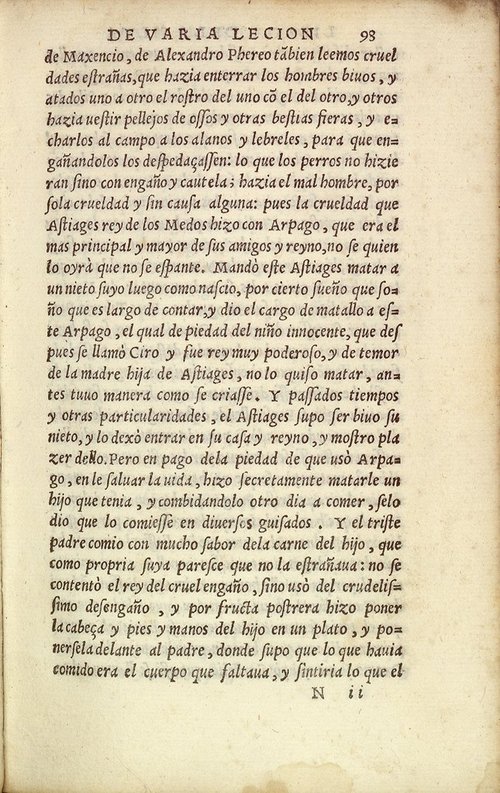 DE VARIA LECION 98
de Maxencio, de Alexandro Phereo tãbien leemos cruel
dades estrañas, que hazia enterrar los hombres biuos, y
atados uno a otro el rostro del uno cõ el del otro, y otros
hazia uestir pellejos de ossos y otras bestias fieras, y e-
charlos al campo a los alanos y lebreles, para que en-
gañandolos los despedaçassen: lo que los perros no hizie
ran sino con engaño y cautela; hazia el mal hombre, por
sola crueldad y sin causa alguna: pues la crueldad que
Astiages rey de los Medos hizo con Arpago, que era el
mas principal y mayor de sus amigos y reyno, no se quien
lo oyrà que no se espante. Mandò este Astiages matar a
un nieto suyo luego como nascio, por cierto sueño que so-
ño que es largo de contar, y dio el cargo de matallo a es-
te Arpago, el qual de piedad del niño innocente, que des
puès se llamò Ciro y fue rey muy poderoso, y de temor
de la madre hija de Astiages, no lo quiso matar, an-
tes tuuo manera como se criasse. Y passados tiempos
y otras particularidades, el Astiages supo ser biuo su
nieto, y lo dexò entrar en su casa y reyno, y mostro pla
zer dello. Pero en pago dela piedad de que usò Arpa-
go, en le saluar la uida, hizo secretamente matarle un
hijo que tenia, y combidandolo otro dia a comer, selo
dio que lo comiesse en diuersos guisados. Y el triste
padre comio con mucho sabor dela carne del hijo, que
como propria suya paresce que no la estrañaua: no se
contentò el rey del cruel engaño, sino usò del crudelis-
simo desengaño, y por fructa postrera hizo poner
la cabeça y pies y manos del hijo en un plato, y po-
nersela delante al padre, donde supo que lo que hauia
comido era el cuerpo que faltaua, y sintiria lo que el
N ii